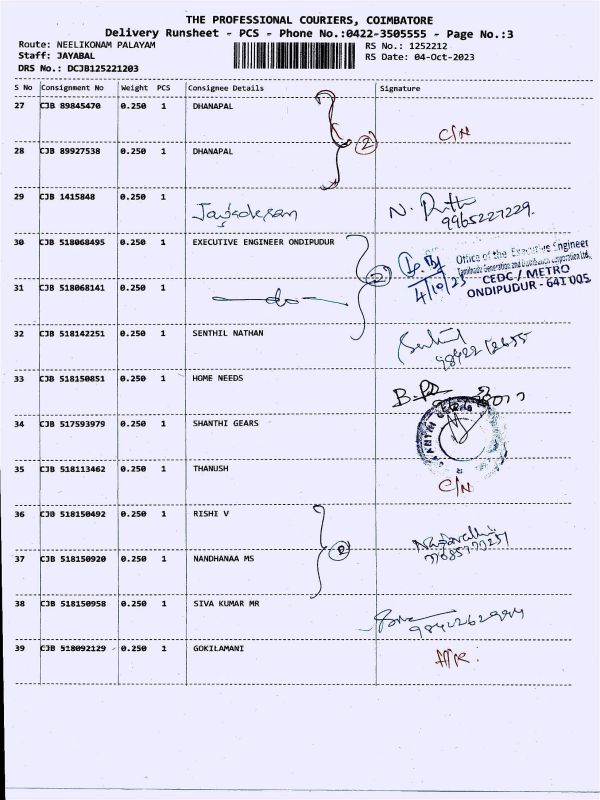 THE PROFESSIONAL COURIERS, COIMBATORE
Delivery Runsheet - PCS - Phone No.:0422-3505555 - Page No.:3
Route: NEELIKONAM PALAYAM RS No.: 1252212
Staff: JAYABAL RS Date: 04-Oct-2023
DRS No.: DCJB125221203
S No Consignment No Weight PCS Consignee Details Signature
27 CJB 89845470 0.250 1 DHANAPAL
2 C/N
28 CJB 89927538 0.250 1 DHANAPAL
29 CJB 1415848 0.250 1 N.
9965227229.
30 CJB 518068495 0.250 1 EXECUTIVE ENGINEER ONDIPUDUR
2 Office of the Executive Engineer
Tamilnadu Generation and Distribution Corporation Ltd.,
31 CJB 518068141 0.250 1 do 4/10/23 CEDC / METRO
ONDIPUDUR - 641 005
32 CJB 518142251 0.250 1 SENTHIL NATHAN
33 CJB 518150851 0.250 1 HOME NEEDS
34 CJB 517593979 1 SHANTHI GEARS
0.250
35 CJB 518113462 0.250 1 THANUSH
C/N
36 CJB 518150492 0.250 1 RISHI V
2
37 CJB 518150920 0.250 1 NANDHANAA MS
38 CJB 518150958 0.250 1 SIVA KUMAR MR
39 CJB 518092129 0.250 1 GOKILAMANI